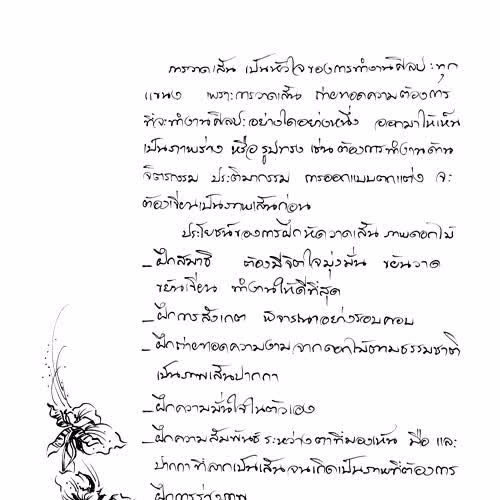 การวาดเส้น เป็นหัวใจของการทำงานศิลปะทุก
แขนง เพราะการวาดเส้น ถ่ายทอดความต้องการ
ที่จะทำงานศิลปะอย่างใดอย่างหนึ่ง ออกมาให้เห็น
เป็นภาพร่าง หรือ รูปทรง เช่น ต้องการทำงานด้าน
จิตรกรรม ประติมากรรม การออกแบบตกแต่ง จะ
ต้องเขียนเป็นภาพเส้นก่อน
ประโยชน์ของการฝึกหัดวาดเส้น ภาพดอกไม้
-ฝึกสมาธิ ต้องมีจิตใจมุ่งมั่น ขยันวาด
ขยันเขียน ทำงานให้ดีที่สุด
-ฝึกการสังเกต พิจารณาอย่างรอบคอบ
-ฝึกถ่ายทอดความงามจากดอกไม้ตามธรรมชาติ
เป็นภาพเส้นปากกา
-ฝึกความมั่นใจในตัวเอง
-ฝึกความสัมพันธ์ระหว่างตาที่มองเห็น มือ และ
ปากกาที่ลากเป็นเส้นจนเกิดเป็นภาพที่ต้องการ
-ฝึกการร่างภาพ